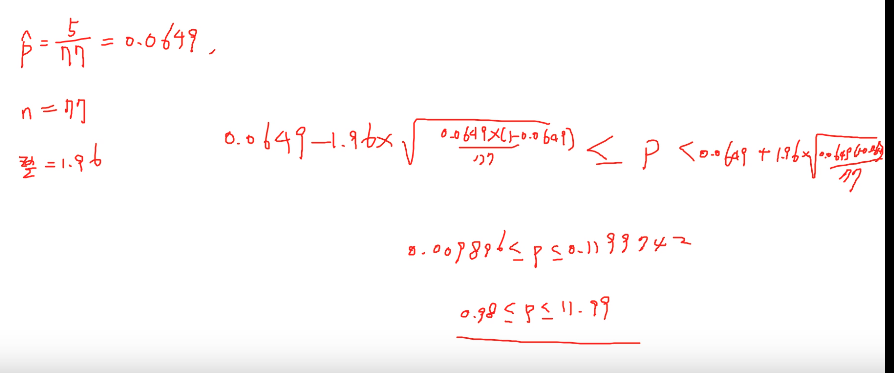 p̂ = 5/77 = 0.0649,
n = 77
0.0649 - 1.96 × √(0.0649×(1-0.0649)/77) ≤ p < 0.0649 + 1.96 ×
= 1.96
0.009896 ≤ p ≤ 0.1199742
0.98 ≤ p ≤ 11.99